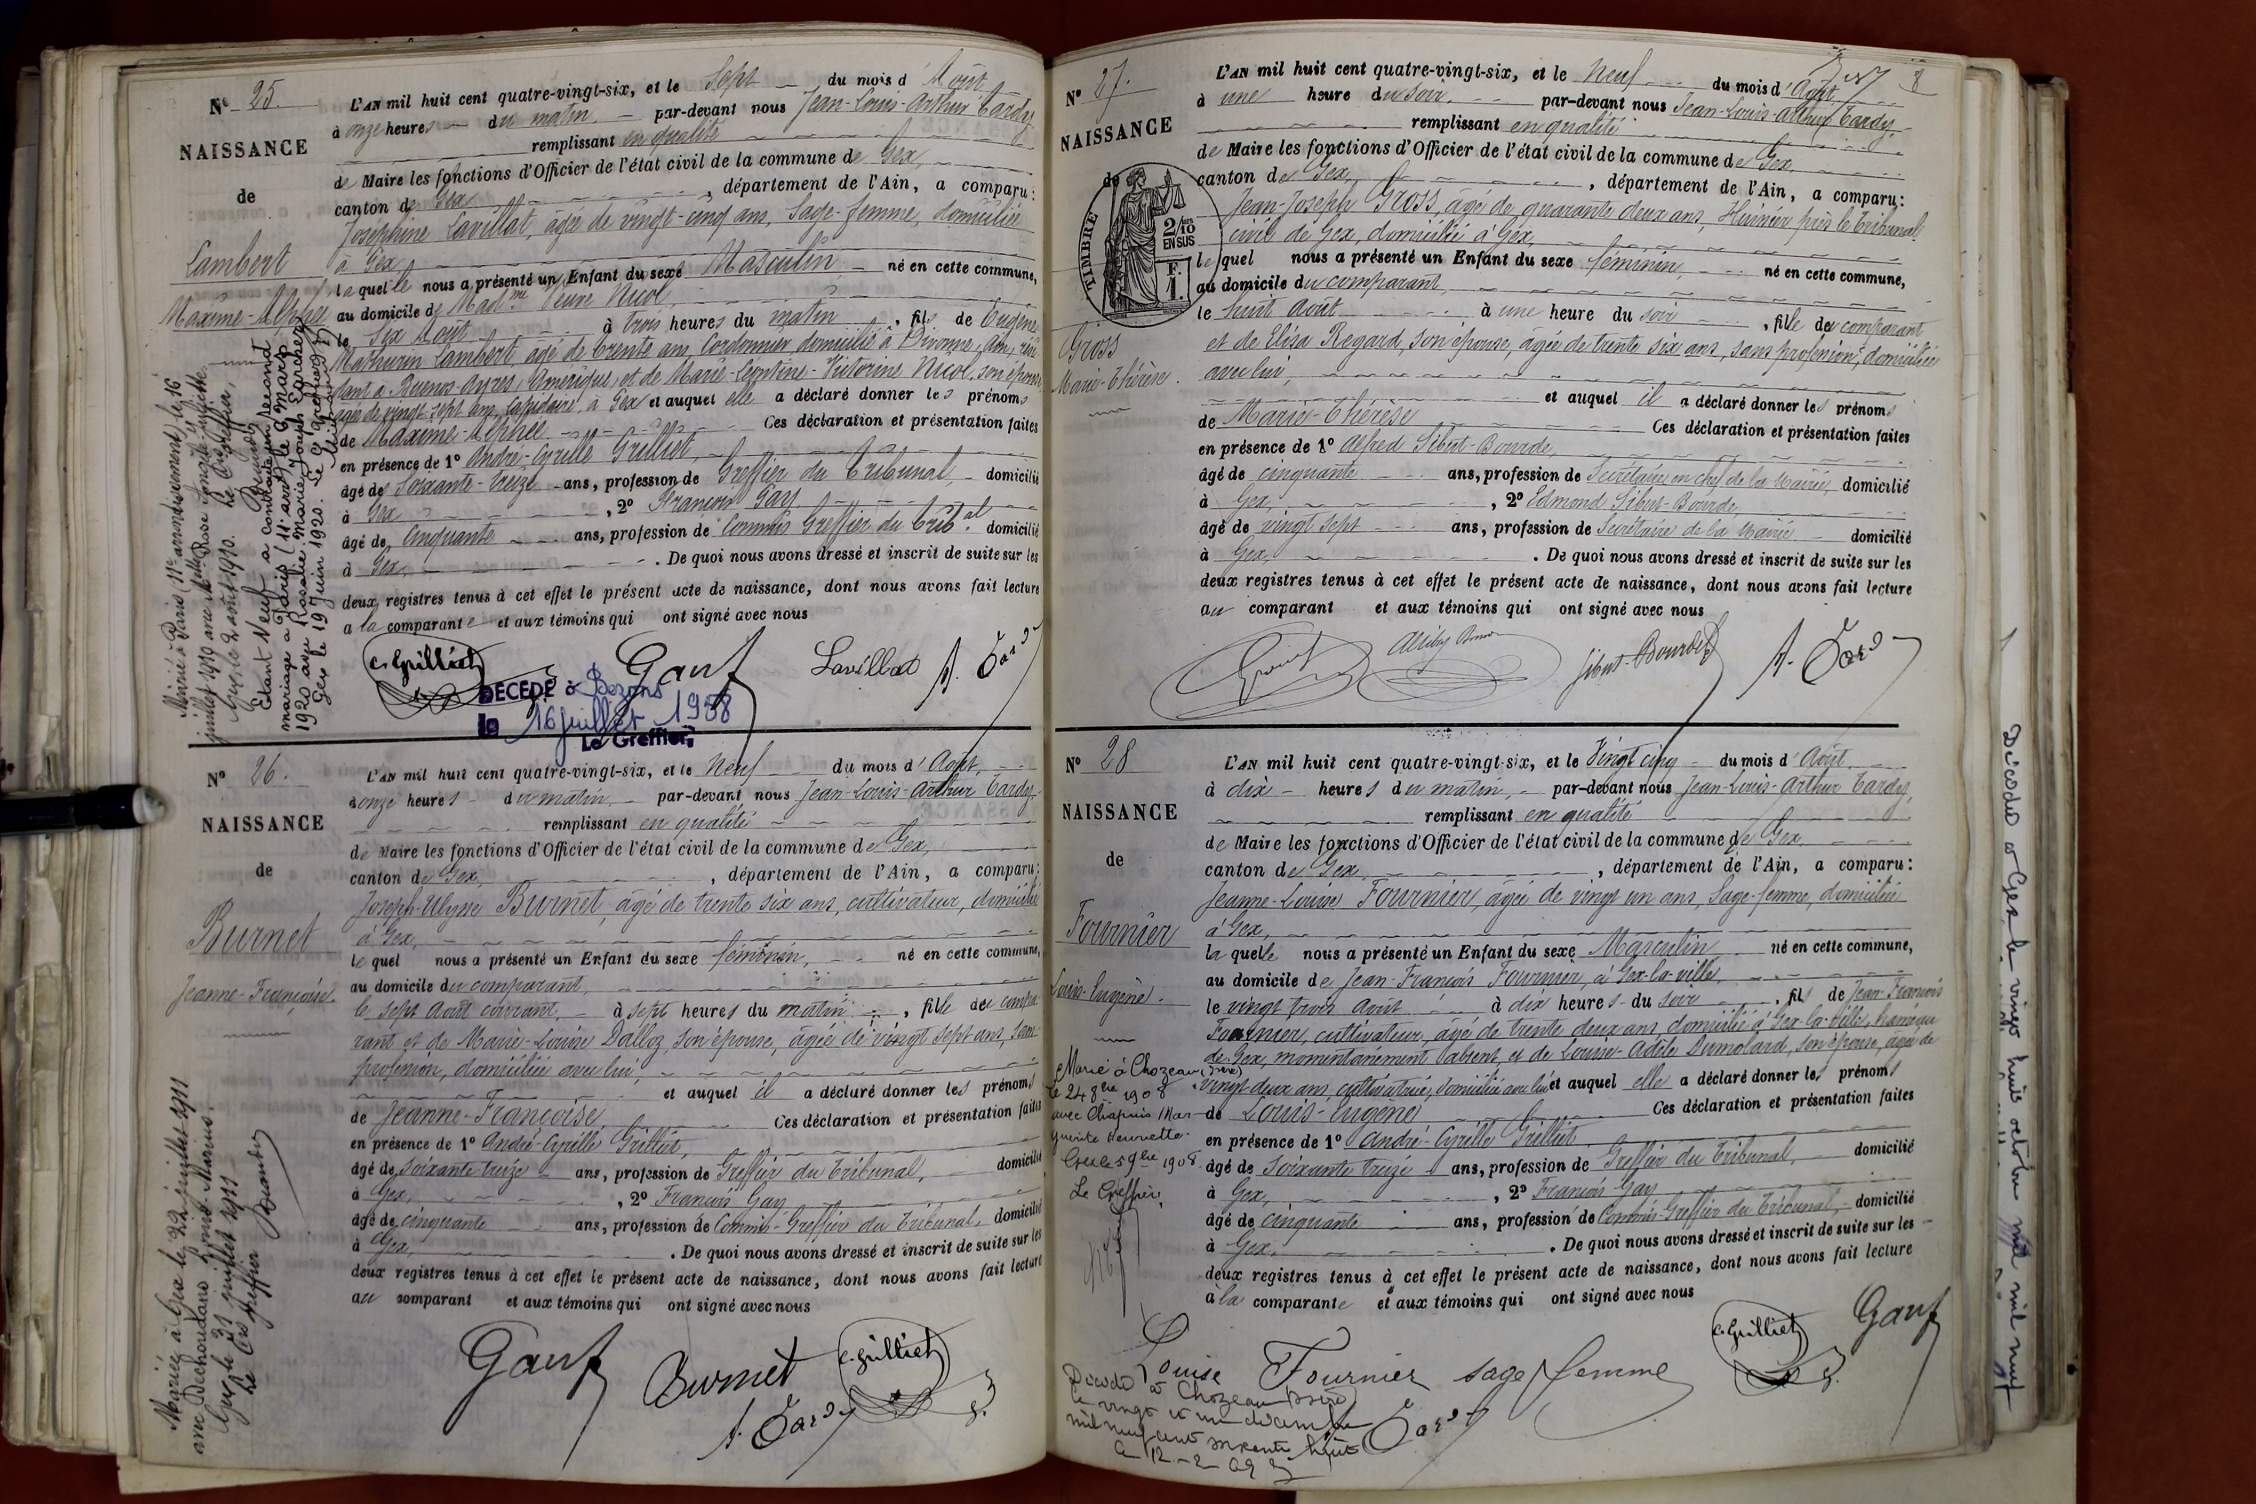 N° 25.
NAISSANCE
de
Lambert
Maxime-Alphée
L'AN mil huit cent quatre-vingt-six, et le Sept du mois d'Août
à onze heures du matin par-devant nous Jean-Louis-Arthur Tardy
remplissant en qualité
de Maire les fonctions d'Officier de l'état civil de la commune de Gex,
canton de Gex, département de l'Ain, a comparu:
Joséphine Lavillat, âgée de vingt-cinq ans, Sage-femme, domiciliée
à Gex,
la quelle nous a présenté un Enfant du sexe Masculin né en cette commune,
au domicile de Mad.me Veuve Nicol,
le Six Août à trois heures du matin, fils de Eugène
Mathurin Lambert, âgé de trente ans, Cordonnier, domicilié à Divonne, Ain, rési-
dant à Buenos-Ayres, Amérique, et de Marie-Léontine-Victorine Nicol, son épouse
âgée de vingt-sept ans, Lapidaire, à Gex et auquel elle a déclaré donner les prénoms
de Maxime-Alphée Ces déclaration et présentation faites
en présence de 1° André-Cyrille Grilliet,
âgé de Soixante-treize ans, profession de Greffier du Tribunal, domicilié
à Gex, 2° François Gay,
âgé de Cinquante ans, profession de Commis Greffier du Trib.al domicilié
à Gex, . De quoi nous avons dressé et inscrit de suite sur les
deux registres tenus à cet effet le présent acte de naissance, dont nous avons fait lecture
a la comparante et aux témoins qui ont signé avec nous
Marié à Paris 11e arrondissement le 16
juillet 1910 avec Rose
Gex, le 2 août 1910. Le Greffier,
Etant Veuf a contracté un second
mariage à Paris (11e arrt) le 9 Mars
1920 avec Rosalie Marie Joseph
Gex le 19 Juin 1920. Le Greffier
C. Grilliet Gauf Lavillat A. Tardy
DECEDE à Bezons
le 16 juillet 1958
Le Greffier,
N° 26.
NAISSANCE
de
Burnet
Jeanne-Françoise.
L'AN mil huit cent quatre-vingt-six, et le Neuf du mois d'Août,
à onze heures du matin, par-devant nous Jean-Louis-Arthur Tardy,
remplissant en qualité
de Maire les fonctions d'Officier de l'état civil de la commune de Gex,
canton de Gex, département de l'Ain, a comparu:
Joseph-Ulysse Burnet, âgé de trente six ans, cultivateur, domicilié
à Gex,
le quel nous a présenté un Enfant du sexe féminin, né en cette commune,
au domicile du comparant,
le sept Août courant, à sept heures du matin, fille du compa-
rant et de Marie-Louise Dalloz, son épouse, âgée de vingt sept ans, sans
profession, domiciliée avec lui,
et auquel il a déclaré donner les prénoms
de Jeanne-Françoise, Ces déclaration et présentation faites
en présence de 1° André-Cyrille Grilliet,
âgé de Soixante treize ans, profession de Greffier du Tribunal, domicilié
à Gex, 2° François Gay
âgé de cinquante ans, profession de Commis-Greffier du Tribunal, domicilié
à Gex, . De quoi nous avons dressé et inscrit de suite sur les
deux registres tenus à cet effet le présent acte de naissance, dont nous avons fait lecture
au comparant et aux témoins qui ont signé avec nous
Mariée à Gex le 22 juillet 1911
avec Marius.
Gex le 31 juillet 1911
Le Greffier
Gauf Burnet C. Grilliet
A. Tardy
8
N° 27.
NAISSANCE
de
TIMBRE
2/10
EN SUS
F.
1.
Gross
Marie-Thérèse.
L'AN mil huit cent quatre-vingt-six, et le Neuf du mois d'Août
à une heure du soir, par-devant nous Jean-Louis-Arthur Tardy,
remplissant en qualité
de Maire les fonctions d'Officier de l'état civil de la commune de Gex,
canton de Gex, département de l'Ain, a comparu:
Jean-Joseph Gross, âgé de quarante deux ans, Huissier près le Tribunal
civil de Gex, domicilié à Gex,
le quel nous a présenté un Enfant du sexe féminin, né en cette commune,
au domicile du comparant,
le huit Août à une heure du soir, fille du comparant
et de Elisa Regard, son épouse, âgée de trente six ans, sans profession, domiciliée
avec lui,
et auquel il a déclaré donner les prénoms
de Marie-Thérèse Ces déclaration et présentation faites
en présence de 1° Alfred Sibut-Bourde,
âgé de cinquante ans, profession de Secrétaire en chef de la Mairie, domicilié
à Gex, 2° Edmond Sibut-Bourde,
âgé de vingt sept ans, profession de Secrétaire de la Mairie domicilié
à Gex, . De quoi nous avons dressé et inscrit de suite sur les
deux registres tenus à cet effet le présent acte de naissance, dont nous avons fait lecture
au comparant et aux témoins qui ont signé avec nous
Sibut-Bourde A. Tardy
N° 28
NAISSANCE
de
Fournier
Louis-Eugène.
L'AN mil huit cent quatre-vingt-six, et le Vingt cinq du mois d'Août
à dix heures du matin, par-devant nous Jean-Louis-Arthur Tardy,
remplissant en qualité
de Maire les fonctions d'Officier de l'état civil de la commune de Gex,
canton de Gex, département de l'Ain, a comparu:
Jeanne-Louise Fournier, âgée de vingt un ans, Sage-femme, domiciliée
à Gex,
la quelle nous a présenté un Enfant du sexe Masculin né en cette commune,
au domicile de Jean-François Fournier, à Gex-la-ville,
le vingt trois Août à dix heures du soir, fils de Jean-François
Fournier, cultivateur, âgé de trente deux ans, domicilié à Gex-la-Ville, hameau
de Gex, momentanément absent, et de Louise-Adèle Dumolard, son épouse, âgée de
vingt deux ans, cultivatrice, domiciliée avec lui et auquel elle a déclaré donner les prénoms
de Louis-Eugène Ces déclaration et présentation faites
en présence de 1° André-Cyrille Grilliet
âgé de Soixante treize ans, profession de Greffier du Tribunal, domicilié
à Gex, 2° François Gay
âgé de cinquante ans, profession de Commis-Greffier du Tribunal, domicilié
à Gex, . De quoi nous avons dressé et inscrit de suite sur les
deux registres tenus à cet effet le présent acte de naissance, dont nous avons fait lecture
à la comparante et aux témoins qui ont signé avec nous
Marié à Chozeau (Isère)
le 24 8bre 1908
avec Chapuis Mar-
guerite Henriette.
Gex le 5 9bre 1908.
Le Greffier,
Louise Fournier sage femme C. Grilliet Gauf
Tardy
Décédé à Chozeau (Isère)
le vingt et un décembre
mil neuf cent soixante huit
Décédée à Gex le vingt huit octobre mil neuf